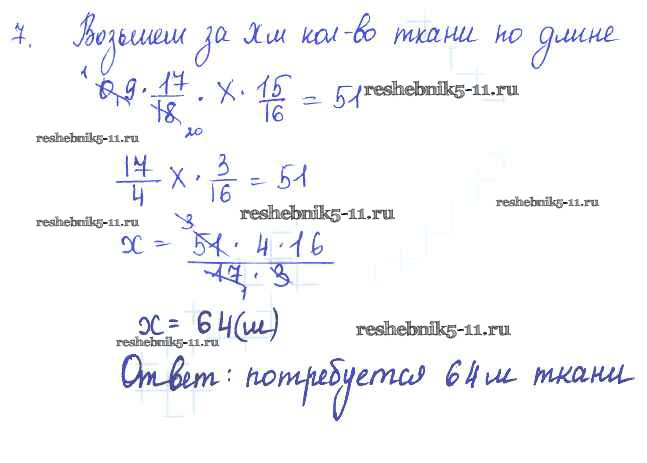 7. Возьмем за Xм кол-во ткани по длине
1
0,9 · 17/18 · X · 15/16 = 51 reshebnik5-11.ru
20
reshebnik5-11.ru
17/4 X · 3/16 = 51
reshebnik5-11.ru
reshebnik5-11.ru
reshebnik5-11.ru
3
x = 51 · 4 · 16 / 17 · 3
1
x = 64(м)
reshebnik5-11.ru
reshebnik5-11.ru
Ответ: потребуется 64 м ткани